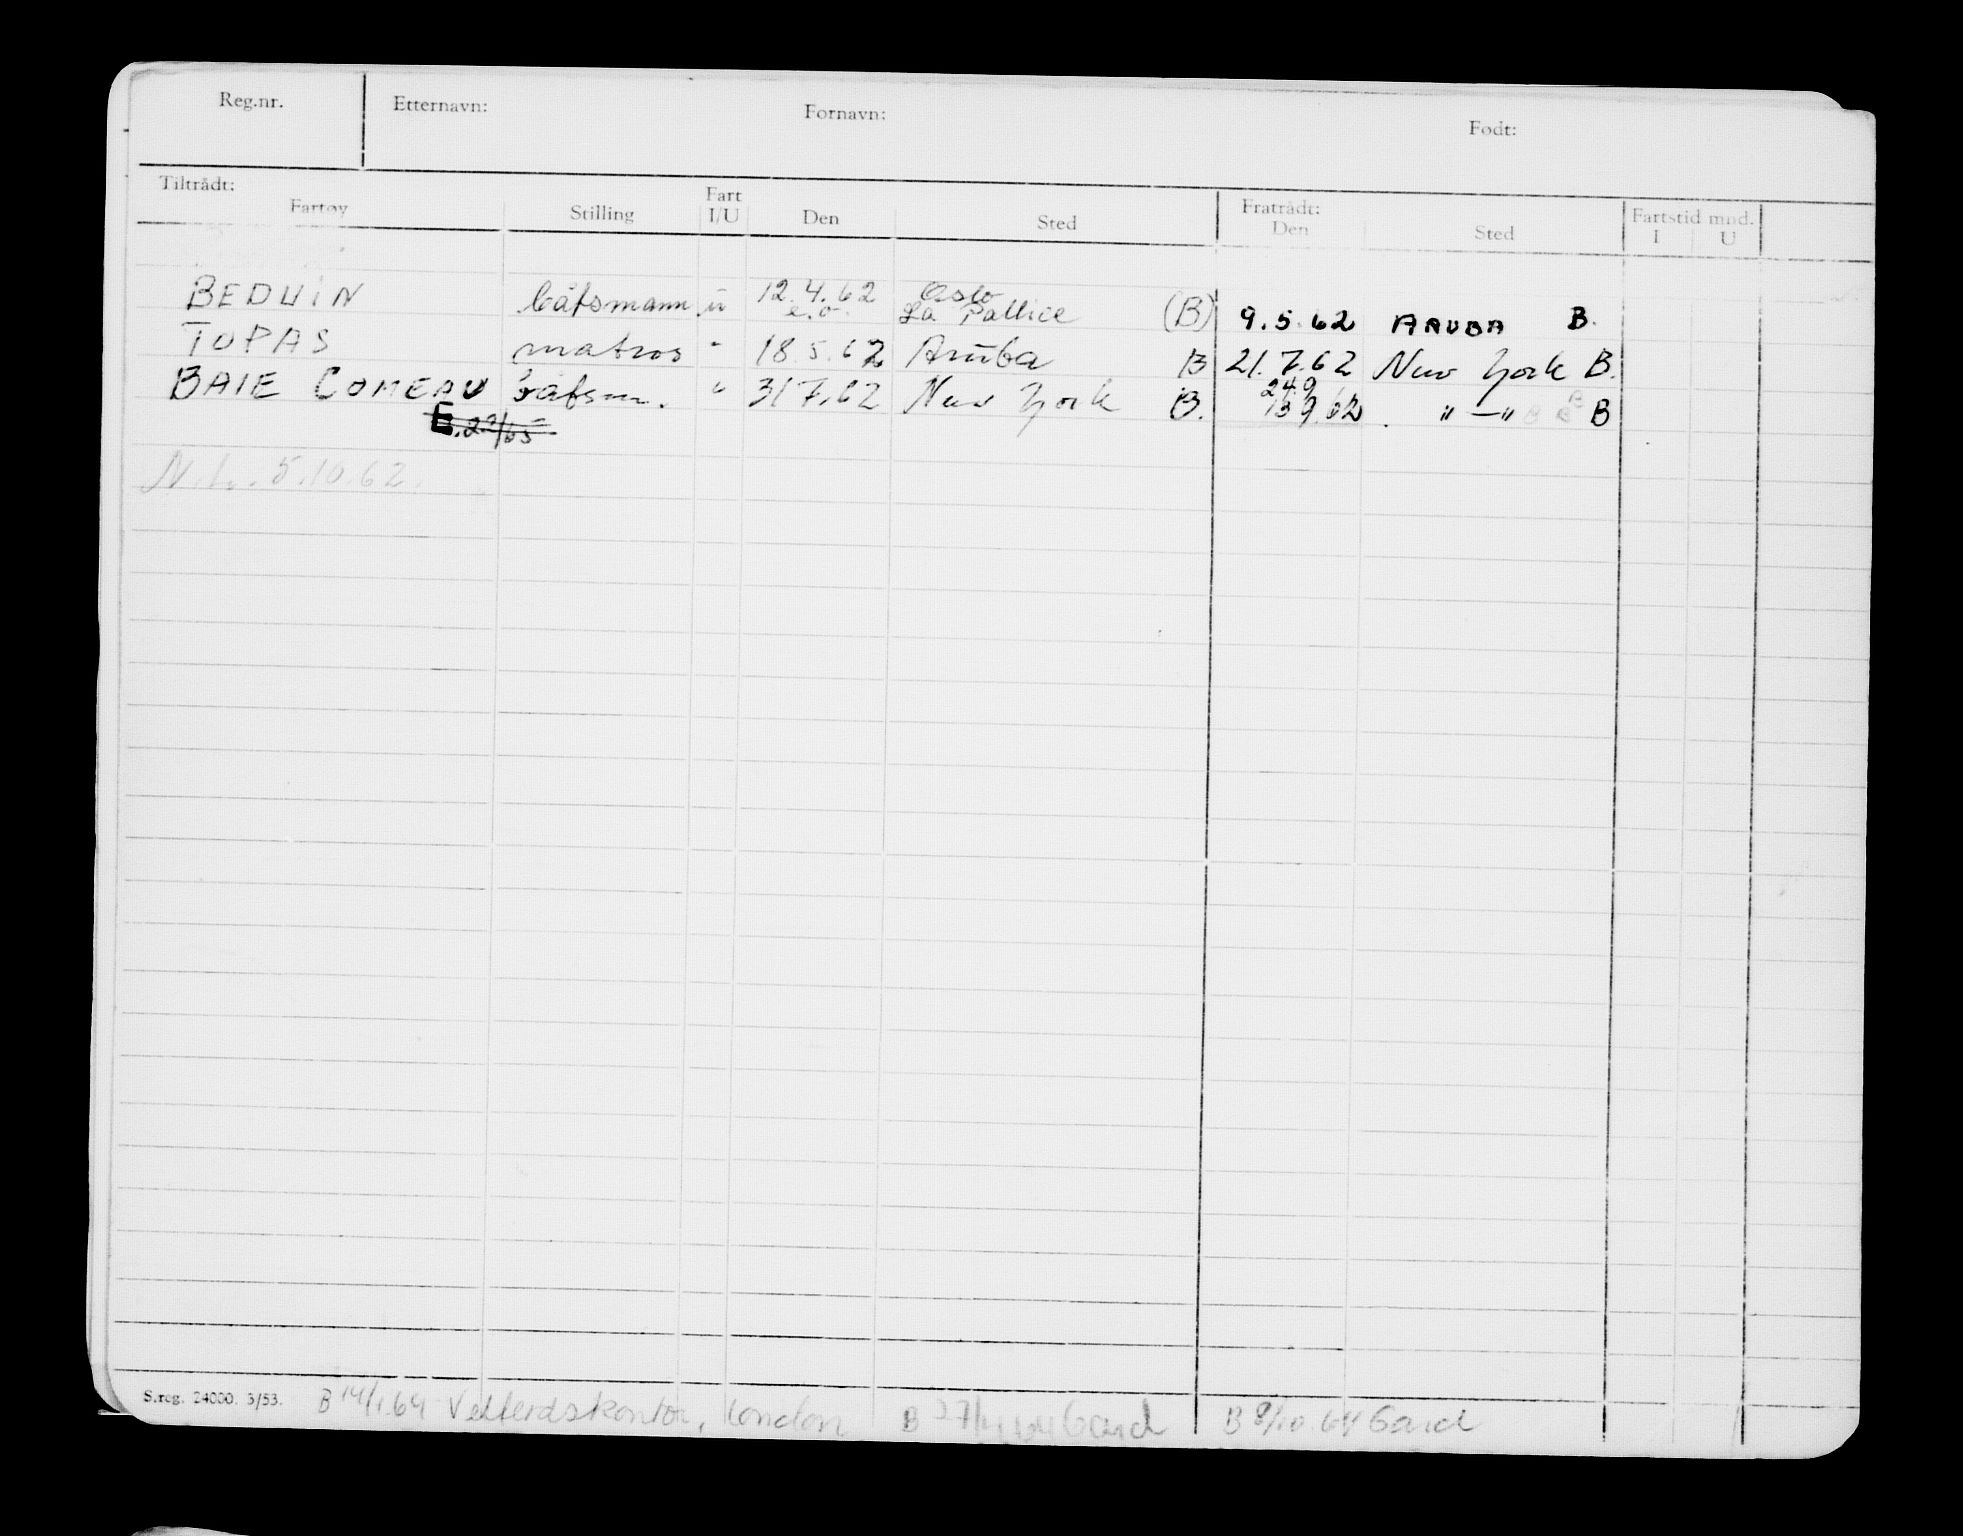 Reg.nr. Etternavn: Fornavn: Født:
Tiltrådt: Fratrådt:
Fartøy Stilling Fart I/U Den Sted Den Sted Fartstid mnd. I U
BEDUIN båtsmann u 12.4.62 e.o. Oslo La Pallice (B) 9.5.62 ARUBA B.
TOPAS matros " 18.5.62 Aruba B 21.7.62 New York B.
BAIE COMEAU båtsm. " 31 7.62 New York B. 24.9 9.62 " — " B
N.L. 5.10.62.
S.reg. 24000. 3/53. B 14/1.64 Velferdskontor, London B 27/ 64 Gard B 8/10.64 Gard